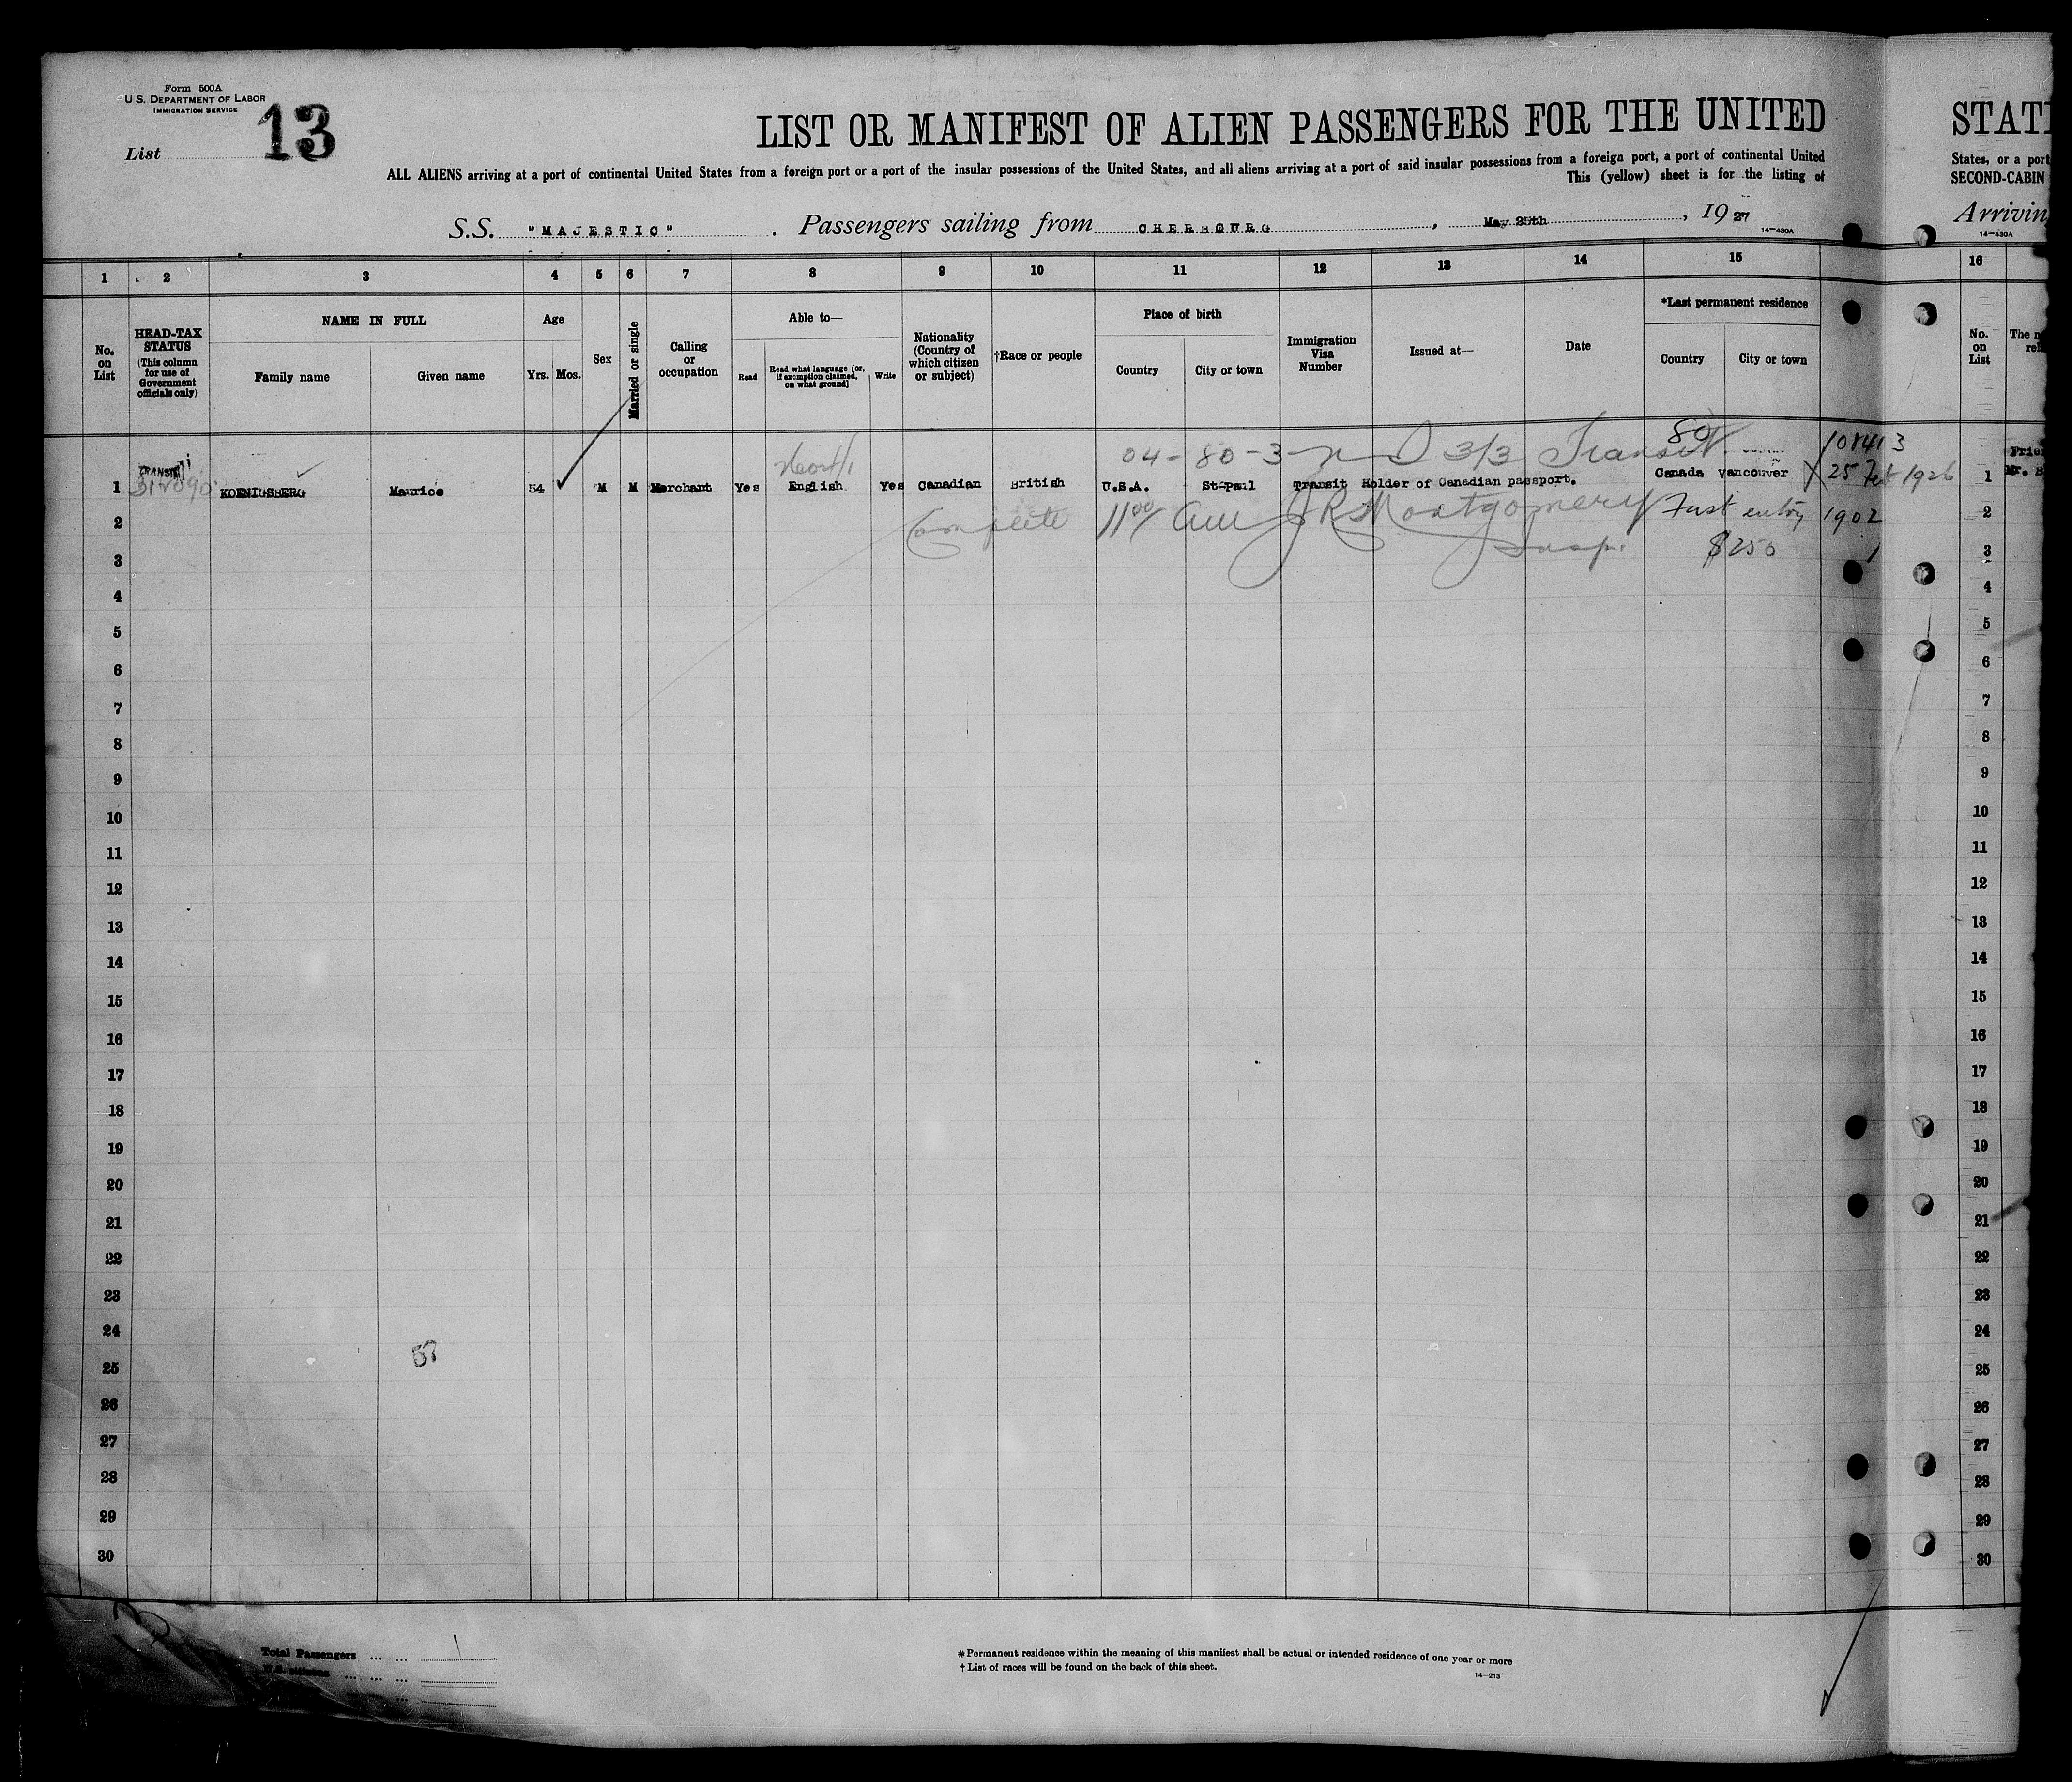 Form 500A
U.S. DEPARTMENT OF LABOR
IMMIGRATION SERVICE
List 13
LIST OR MANIFEST OF ALIEN PASSENGERS FOR THE UNITED
ALL ALIENS arriving at a port of continental United States from a foreign port or a port of the insular possessions of the United States, and all aliens arriving at a port of said insular possessions from a foreign port, a port of continental United
This (yellow) sheet is for the listing of
S.S. "MAJESTIC". Passengers sailing from CHERBOURG, May 25th, 1927
14-430A
STAT
States, or a port
SECOND-CABIN
Arrivin
14-430A
1 2 3 4 5 6 7 8 9 10 11 12 13 14 15 16
No. on List
HEAD-TAX STATUS
(This column for use of Government officials only)
NAME IN FULL
Family name Given name
Age
Yrs. Mos.
Sex
Married or single
Calling or occupation
Able to—
Read
Read what language (or, if exemption claimed, on what ground)
Write
Nationality (Country of which citizen or subject)
†Race or people
Place of birth
Country City or town
Immigration Visa Number
Issued at—
Date
*Last permanent residence
Country City or town
No. on List
The n
04-80-3 3/3 Transit 80 108413
TRANSIT
1 KOENIGSBERG Maurice 54 M M Merchant Yes English Yes Canadian British U.S.A. St-Paul Transit Holder of Canadian passport. Canada Vancouver 25 Feb 1926 1 Mr. B
2 Complete 11 00 AM J R Montgomery First entry 1902 2
3 Insp. $250 3
4 4
5 5
6 6
7 7
8 8
9 9
10 10
11 11
12 12
13 13
14 14
15 15
16 16
17 17
18 18
19 19
20 20
21 21
22 22
23 23
24 24
25 57 25
26 26
27 27
28 28
29 29
30 30
Total Passengers ... ... 1
U.S. citizens ... ... ...
*Permanent residence within the meaning of this manifest shall be actual or intended residence of one year or more
†List of races will be found on the back of this sheet.
14-213